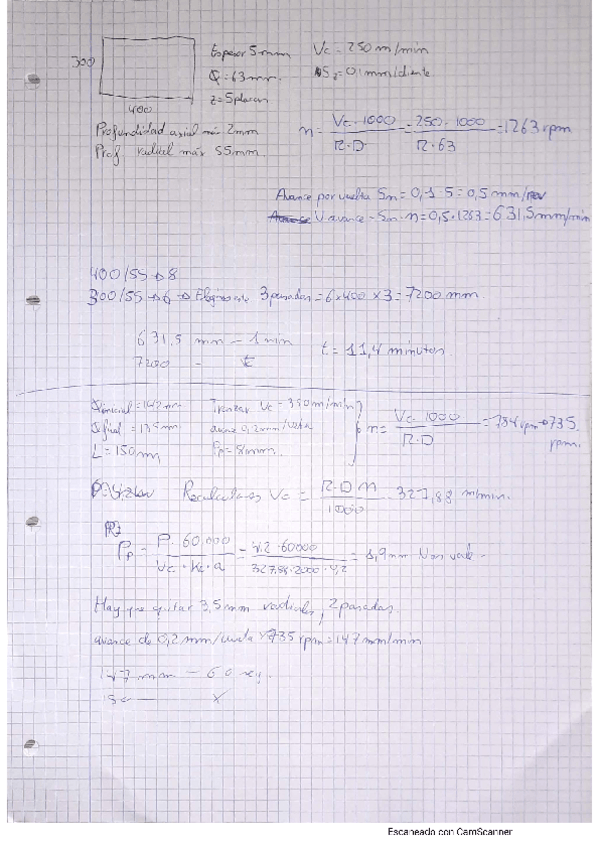 300
400
Espesor 5mm Vc = 250 m/min
Q = 63mm. Sz = 0,1 mm/diente
z = 5 placas
Profundidad axial máx 2mm
Prof. radial máx 55mm.
n = Vc · 1000 / π · D = 250 · 1000 / π · 63 = 1263 rpm
Avance por vuelta Sn = 0,1 · 5 = 0,5 mm/rev
V avance = Sn · n = 0,5 · 1263 = 631,5 mm/min
400/55 → 8
300/55 → 6 → 3 pasadas = 6 x 400 x 3 = 7200 mm
631,5 mm - 1 min
7200 - t
t = 11,4 minutos
L = 150 mm
Vc = 350 m/min
avance 0,2 mm/vuelta
n = Vc · 1000 / π · D = 734 rpm → 735 rpm.
Recalculamos Vc = π · D · n / 1000 = 327,88 m/min.
Pp = P · 60.000 / Vc · Kc · a = 4,2 · 60000 / 327,88 · 2000 · 0,2 = 1,9 mm Nos vale.
Hay que quitar 3,5 mm radiales, 2 pasadas.
avance de 0,2 mm/vuelta x 735 rpm = 147 mm/min
147 mm - 60 seg.
150 - x
Escaneado con CamScanner